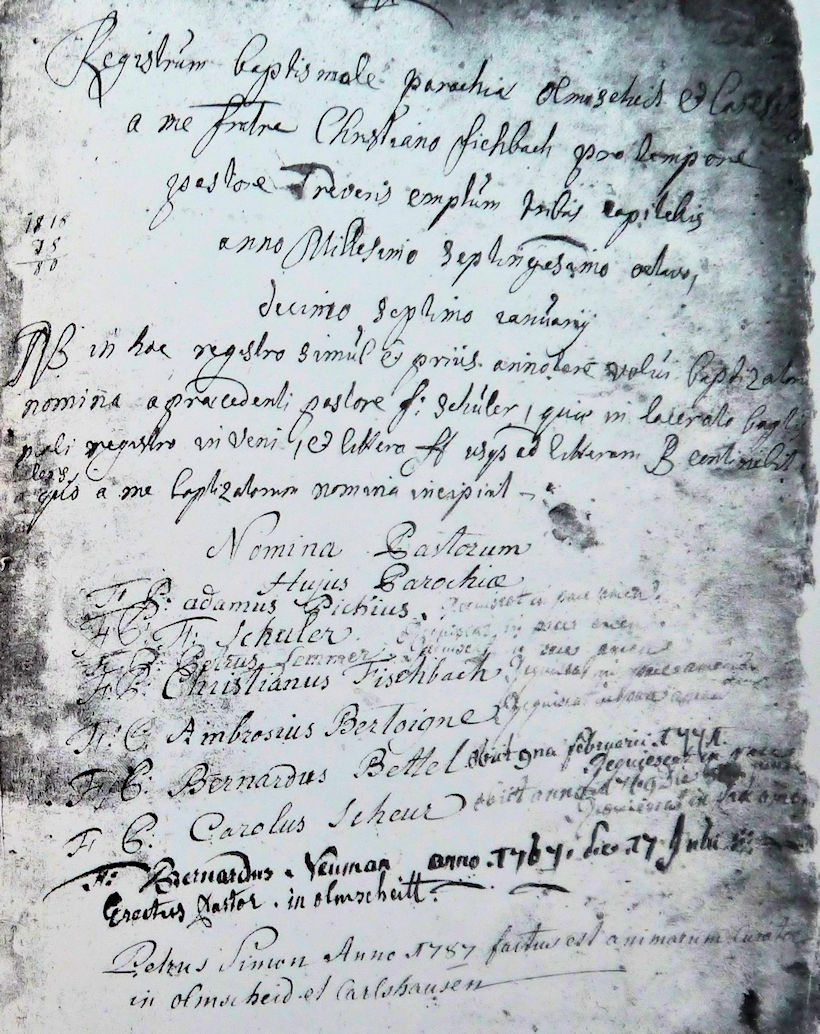 Registrum baptismale parochiæ olmscheit et
a me fratre Christiano fischbach pro tempore
pastore Treveris emptum tribus capitellis
anno Millesimo septingesimo octavo,
decimo septimo januarij
1818
75
80
NB in hac registro simul et prius annotare volui baptizatorum
nomina a præcedenti pastore f: schüler, quæ in lacerato
registro inveni, et littera ff usqs ad litteram B
a me baptizatorum nomina incipiut
Nomina Pastorum
Hujus Parochiæ
F. P: adamus Pichius. Requiescat in pace amen.
F C: F: Schuler. Requiescat in pace amen
F. P: Petrus Lemmer. Requiescat in pace amen
F P: Christianus Fischbach Requiescat in pace amen
F: C: Ambrosius Bertoigne Requiescat in pace amen
F: C: Bernardus Bettel obiit 9na februarii 1771. Requiescat in pace
F C: Carolus Scheur obiit anno 1769 Requiescat in
F: Bernardus Neuman anno 1767. die 17 Julii
Erectus Pastor. in olmscheitt.
Petrus Simon Anno 1787 factus est animarum curator
in olmscheid et Carlshausen